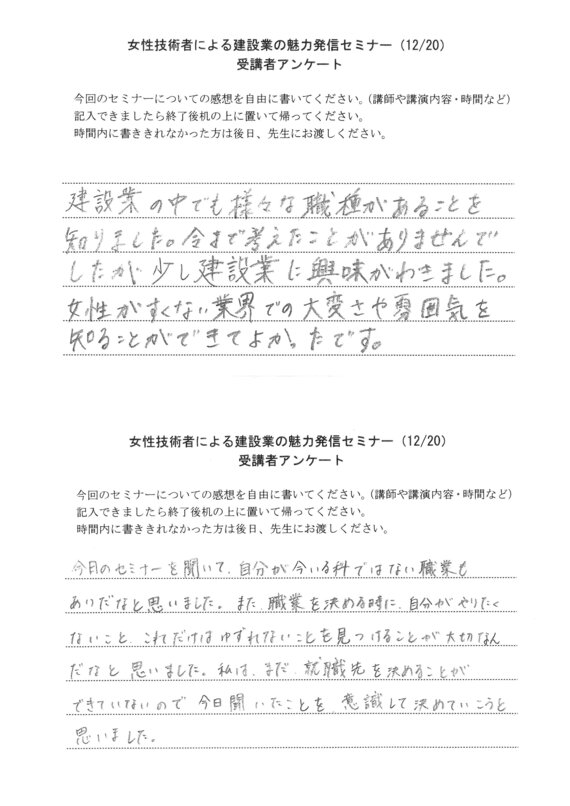 女性技術者による建設業の魅力発信セミナー（12/20）
受講者アンケート
今回のセミナーについての感想を自由に書いてください。（講師や講演内容・時間など）
記入できましたら終了後机の上に置いて帰ってください。
時間内に書ききれなかった方は後日、先生にお渡しください。
建設業の中でも様々な職種があることを
知りました。今まで考えたことがありませんで
したが少し建設業に興味がわきました。
女性がすくない業界での大変さや雰囲気を
知ることができてよかったです。
女性技術者による建設業の魅力発信セミナー（12/20）
受講者アンケート
今回のセミナーについての感想を自由に書いてください。（講師や講演内容・時間など）
記入できましたら終了後机の上に置いて帰ってください。
時間内に書ききれなかった方は後日、先生にお渡しください。
今日のセミナーを聞いて、自分が今いる科ではない職業も
ありだなと思いました。また、職業を決める時に、自分がやりたく
ないこと、これだけはゆずれないことを見つけることが大切なん
だなと思いました。私は、まだ、就職先を決めることが
できていないので今日聞いたことを意識して決めていこうと
思いました。